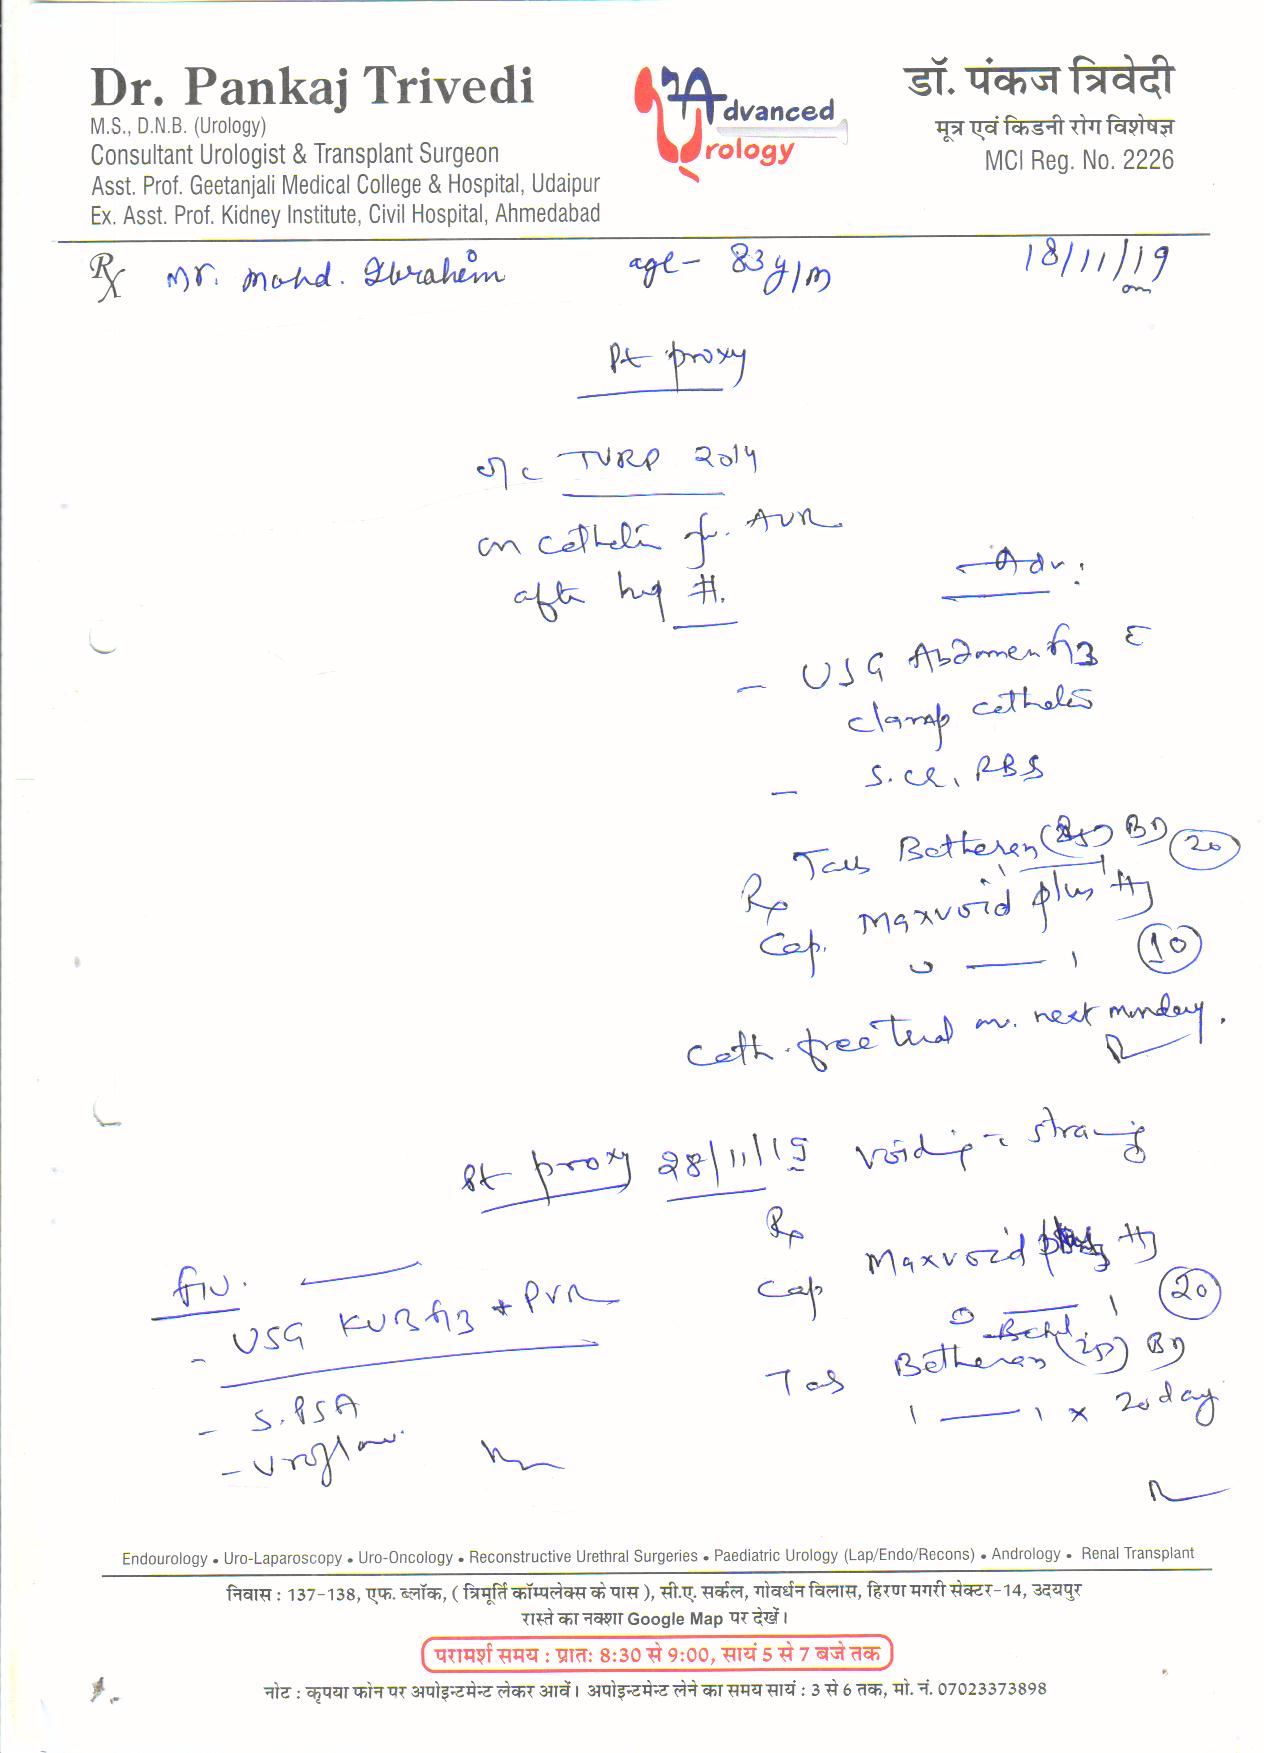 Dr. Pankaj Trivedi
M.S., D.N.B. (Urology)
Consultant Urologist & Transplant Surgeon
Asst. Prof. Geetanjali Medical College & Hospital, Udaipur
Ex. Asst. Prof. Kidney Institute, Civil Hospital, Ahmedabad
Advanced
Urology
डॉ. पंकज त्रिवेदी
मूत्र एवं किडनी रोग विशेषज्ञ
MCI Reg. No. 2226
Rx Mr. Mohd. Ibrahim age - 83 y/m 18/11/19
Pt proxy
TURP 2014
on after hip #.
Adv.
- USG Abdomen
clamp catheter
- S. Cr, RBS
Rx Tab Betheren BD 20
Cap. Maxvoid plus
0 — 1 10
Cath. free trial on next monday.
Pt proxy 28/11/19 voiding
Rx
Cap Maxvoid 20
0 — 1
Tab Betheren (25) BD
1 — 1 x 20 day
- USG KUB + PVR
- S. PSA
- Uroflow
Endourology • Uro-Laparoscopy • Uro-Oncology • Reconstructive Urethral Surgeries • Paediatric Urology (Lap/Endo/Recons) • Andrology • Renal Transplant
निवास : 137-138, एफ. ब्लॉक, ( त्रिमूर्ति कॉम्पलेक्स के पास ), सी.ए. सर्कल, गोवर्धन विलास, हिरण मगरी सेक्टर-14, उदयपुर
रास्ते का नक्शा Google Map पर देखें।
परामर्श समय : प्रातः 8:30 से 9:00, सायं 5 से 7 बजे तक
नोट : कृपया फोन पर अपोइन्टमेन्ट लेकर आवें। अपोइन्टमेन्ट लेने का समय सायं : 3 से 6 तक, मो. नं. 07023373898